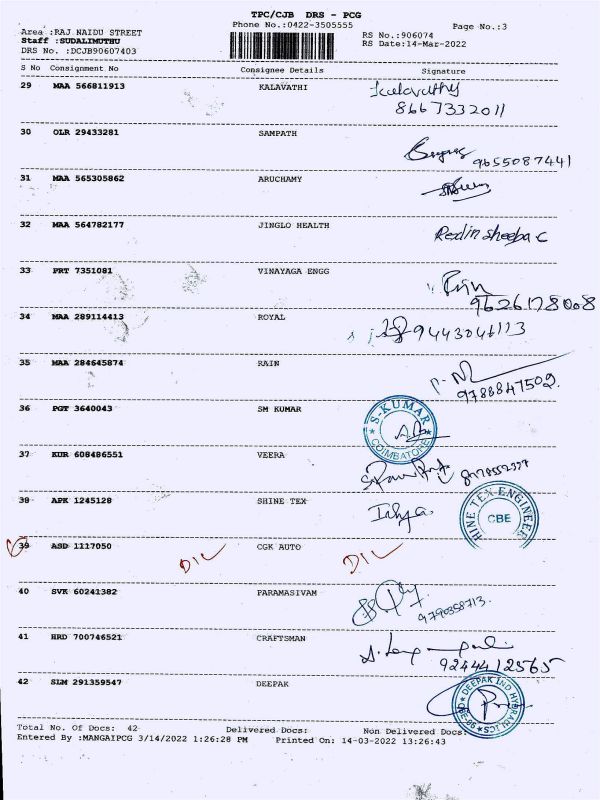 TPC/CJB DRS - PCG
Area :RAJ NAIDU STREET
Phone No.:0422-3505555
Page No.:3
Staff :SUDALIMUTHU
RS No.:906074
DRS No. :DCJB90607403
RS Date:14-Mar-2022
S No Consignment No Consignee Details Signature
29 MAA 566811913 KALAVATHI Kalavathy
8667332011
30 OLR 29433281 SAMPATH
9655087441
31 MAA 565305862 ARUCHAMY
32 MAA 564782177 JINGLO HEALTH Redlin sheeba C
33 PRT 7351081 VINAYAGA ENGG
9626178008
34 MAA 289114413 ROYAL 9443041113
35 MAA 284645874 RAIN
9788847502.
36 PGT 3640043 SM KUMAR S-KUMAR
COIMBATORE
37 KUR 608486551 VEERA
38 APK 1245128 SHINE TEX HINE TEX-ENGINEER
CBE
39 ASD 1117050 D1L CGK AUTO D1L
40 SVK 60241382 PARAMASIVAM
9790358713.
41 HRD 700746521 CRAFTSMAN
9244412565
42 SLM 291359547 DEEPAK DEEPAK IND HYDRAULICS
Total No. Of Docs: 42 Delivered Docs: Non Delivered Docs:
Entered By :MANGAIPCG 3/14/2022 1:26:28 PM Printed On: 14-03-2022 13:26:43